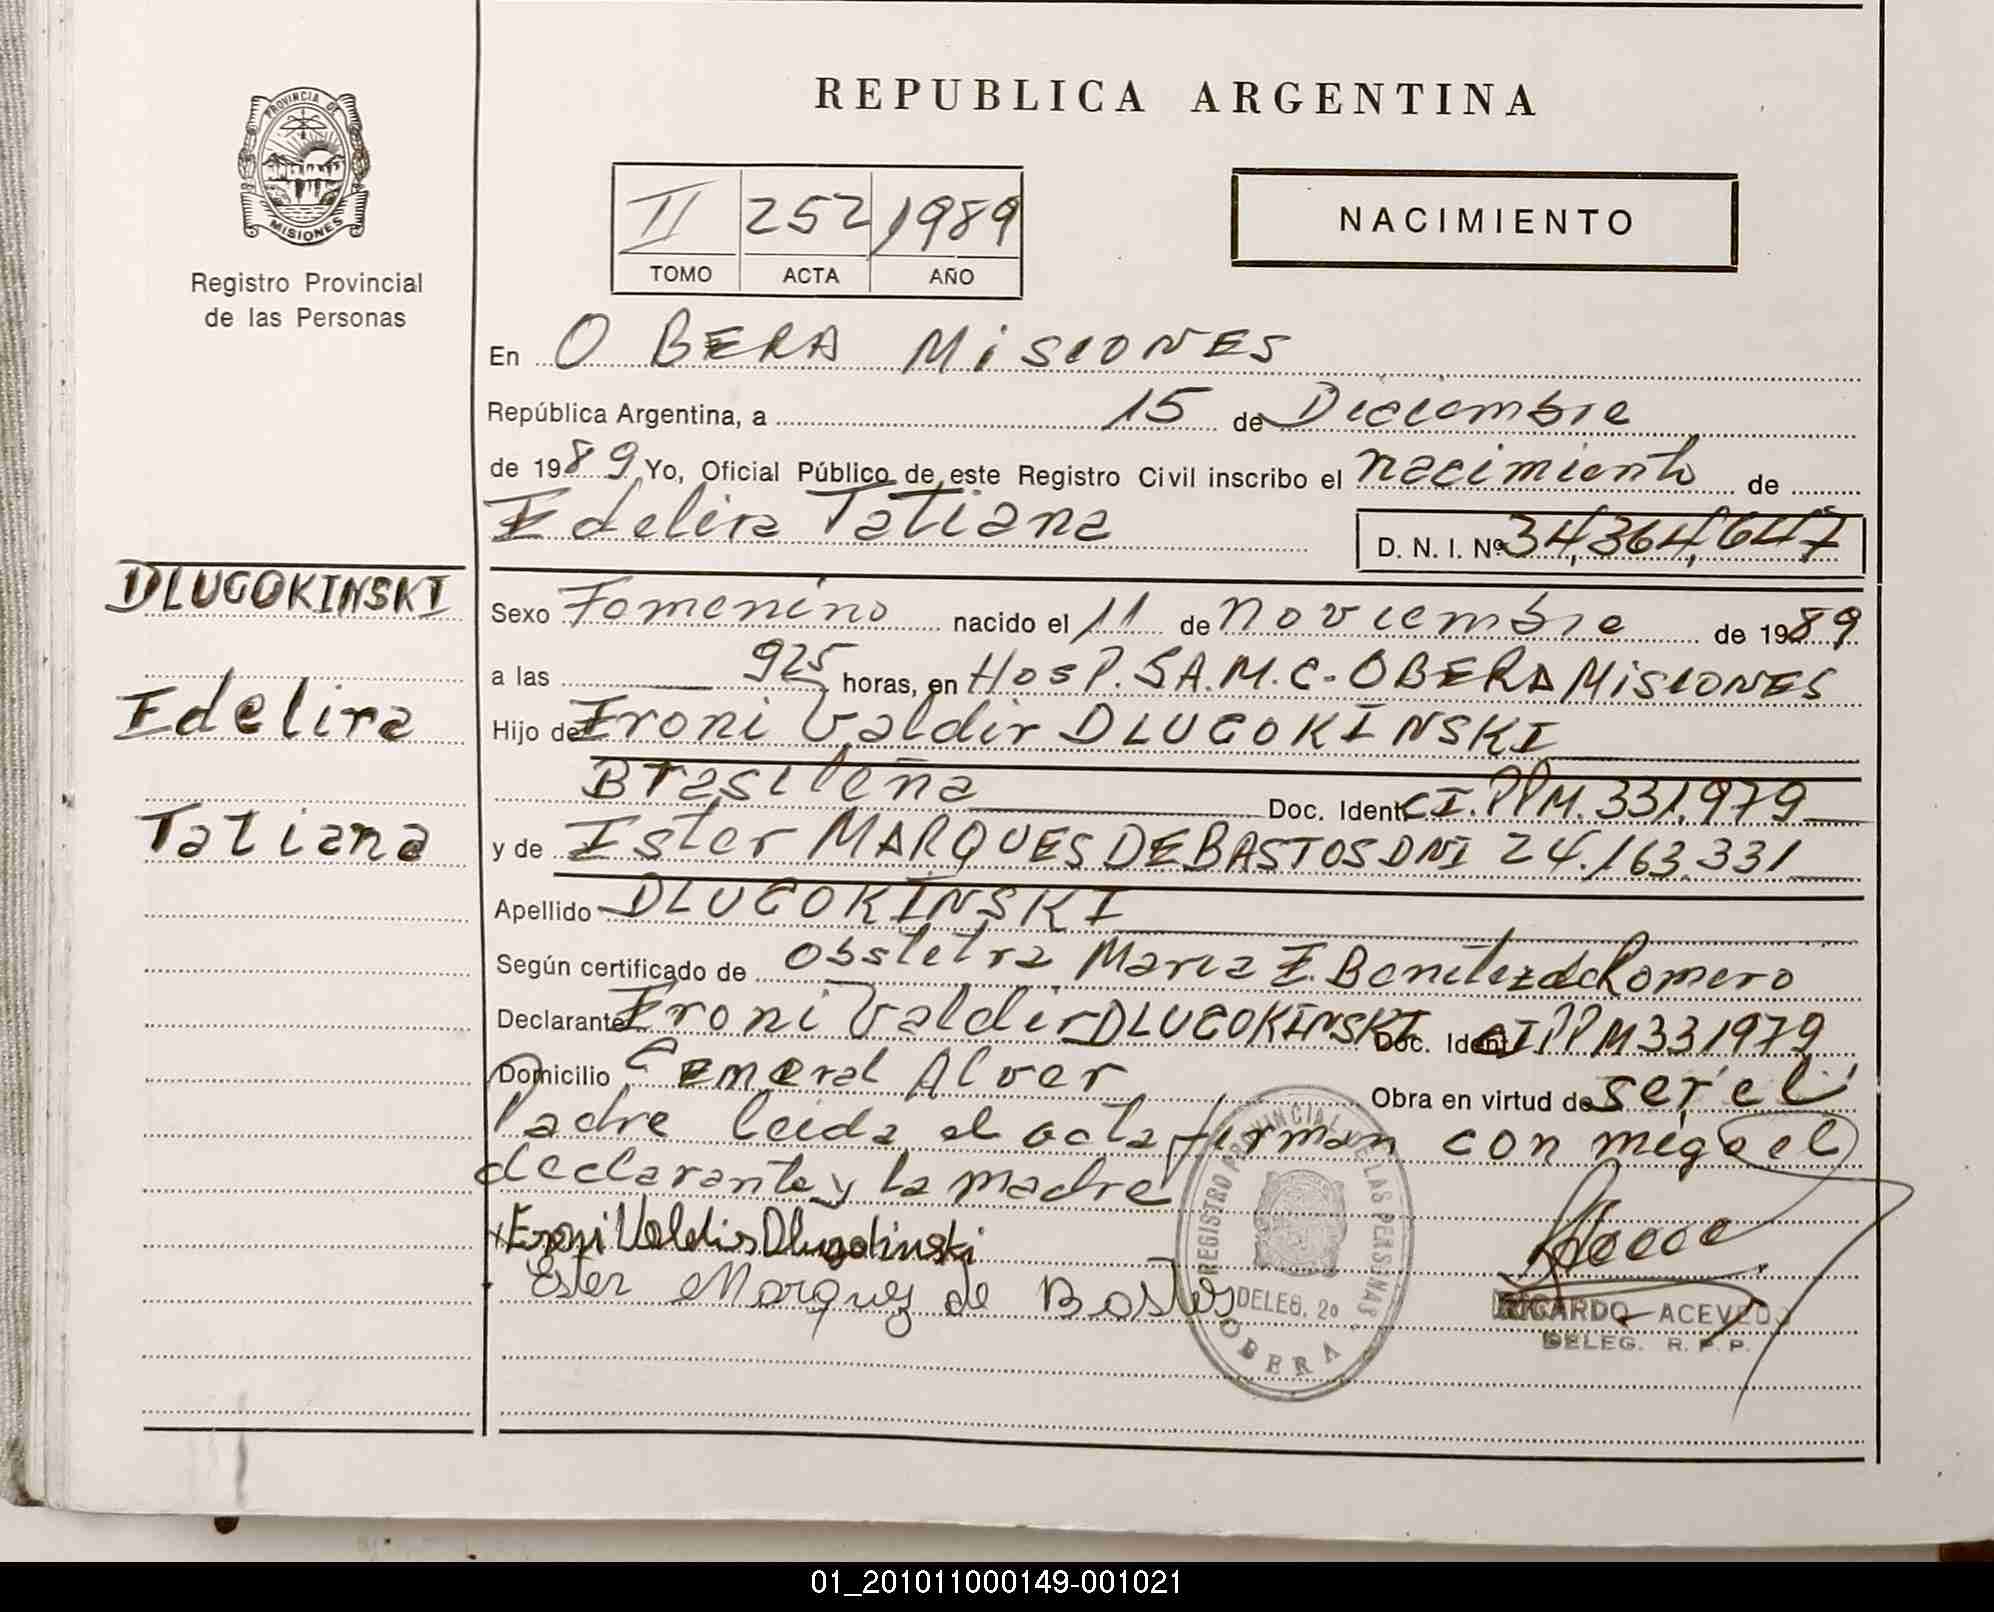 PROVINCIA DE
MISIONES
Registro Provincial
de las Personas
REPUBLICA ARGENTINA
II 252 1989
TOMO ACTA AÑO
NACIMIENTO
En O BERA MiSIONES
República Argentina, a 15 de Diciembre
de 1989 Yo, Oficial Público de este Registro Civil inscribo el nacimiento de
Edelira Tatiana D. N. I. Nº 34,364,647
DLUGOKINSKI
Edelira
Tatiana
Sexo Femenino nacido el 11 de noviembre de 1989
a las 925 horas, en HosP. SA.M.C-OBERA MiSIONES
Hijo de Eroni Valdir DLUGOKINSKI
Brasileña Doc. Ident. CI.PPM.331.979
y de Ester MARQUES DE BASTOS DNI 24.163.331
Apellido DLUGOKINSKI
Según certificado de Obstetra Maria E. Benitez de Romero
Declarante Eroni Valdir DLUGOKINSKI Doc. Ident. CIPPM331979
Domicilio General Alver Obra en virtud de ser el
Padre leida el acta firman con migo el
declarante y la madre
Eroni Valdir Dlugokinski
Ester Marques de Bastos
REGISTRO PROVINCIAL DE LAS PERSONAS
DELEG. 2º
OBERA
RICARDO ACEVEDO
DELEG. R. P. P.
01_201011000149-001021